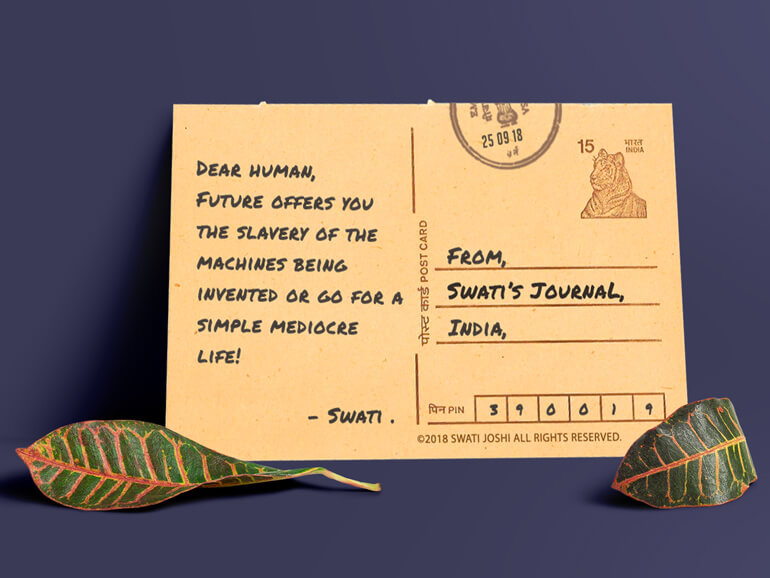 DEAR HUMAN,
FUTURE OFFERS YOU
THE SLAVERY OF THE
MACHINES BEING
INVENTED OR GO FOR A
SIMPLE MEDIOCRE
LIFE!
- SWATI.
25 09 18
15 भारत
INDIA
पोस्ट कार्ड POST CARD
FROM,
SWATI'S JOURNAL,
INDIA,
पिन PIN 390019
©2018 SWATI JOSHI ALL RIGHTS RESERVED.